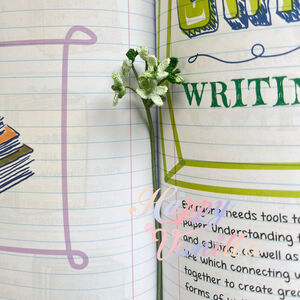 WRITIN
Everyone needs tools to
paper. Understanding t
and editing, as well as
like which connecting w
together to create grea
forms of
Happy